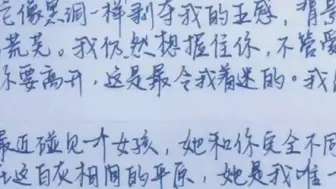 它像黑洞一样剥夺我的五感,
荒芜。我仍然想握住你,不管
你要离开,这是最令我着迷的。我
最近碰见一个女孩,她和你完全不同
这百灰相间的平原,她是我唯